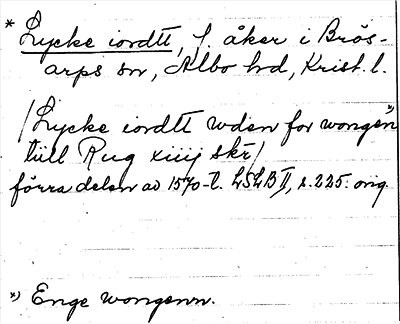 * Lycke iordtt, f. åker i Brös-
arps sn, Albo hd, Krist. l.
/Lycke iordtt wden for wongen *)
till Rug xiiij skr/
förra delen av 1570-t. LSLB II, s. 225. orig.
*) Enge wongenn.